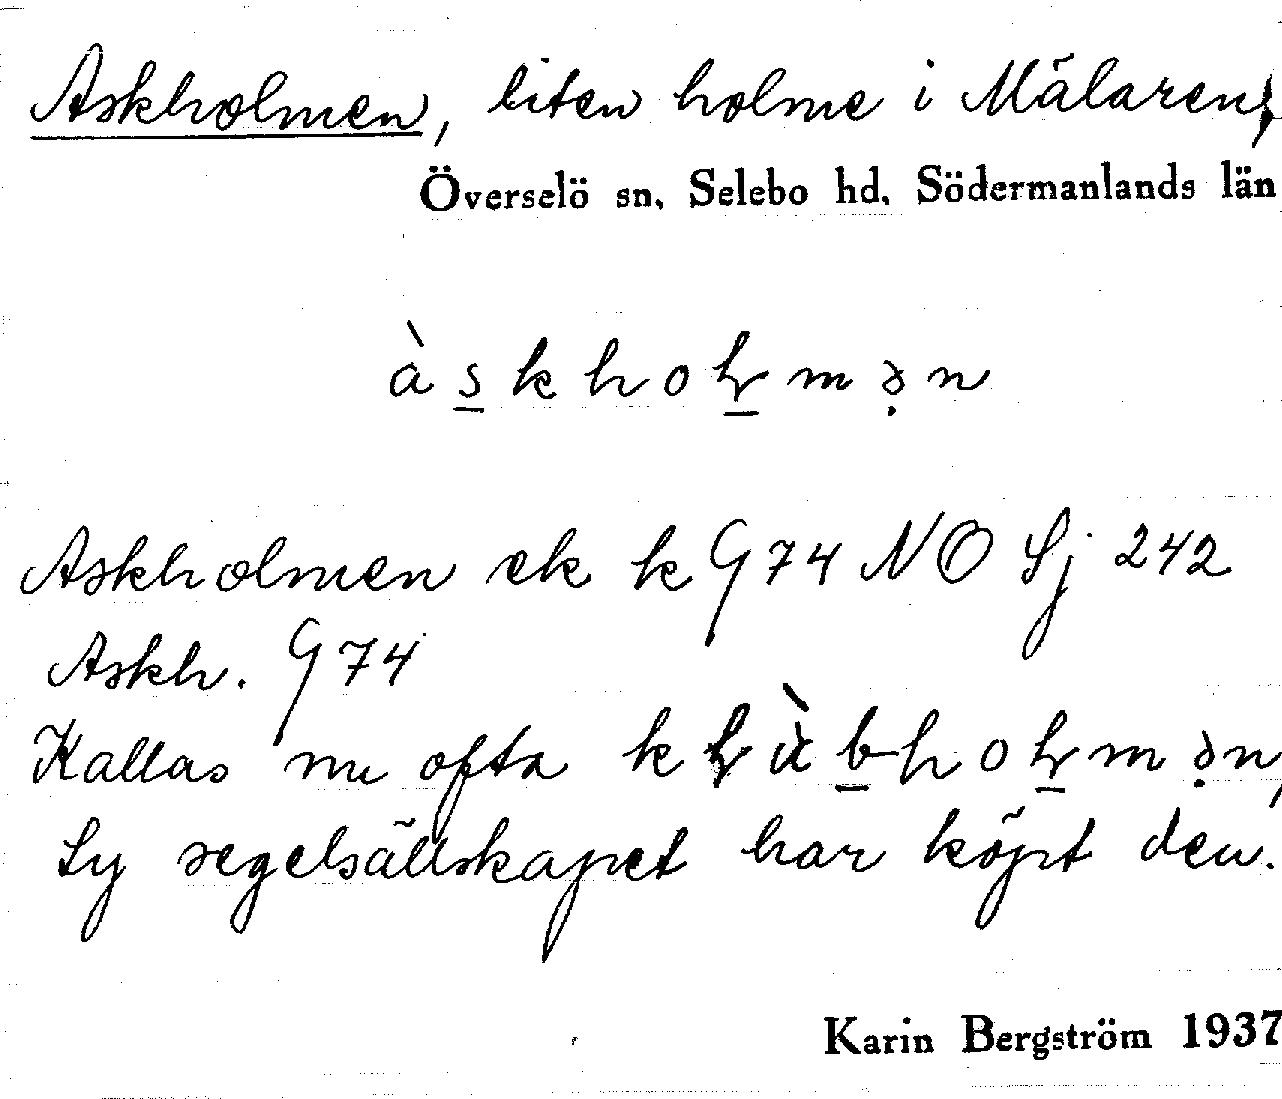 Askholmen, liten holme i Mälaren,
Överselö sn, Selebo hd, Södermanlands län
àskholmən
Askholmen ek k G 74 NO Sj 242
Askh. G 74
Kallas nu ofta klùbholmən,
ty segelsällskapet har köpt den.
Karin Bergström 1937